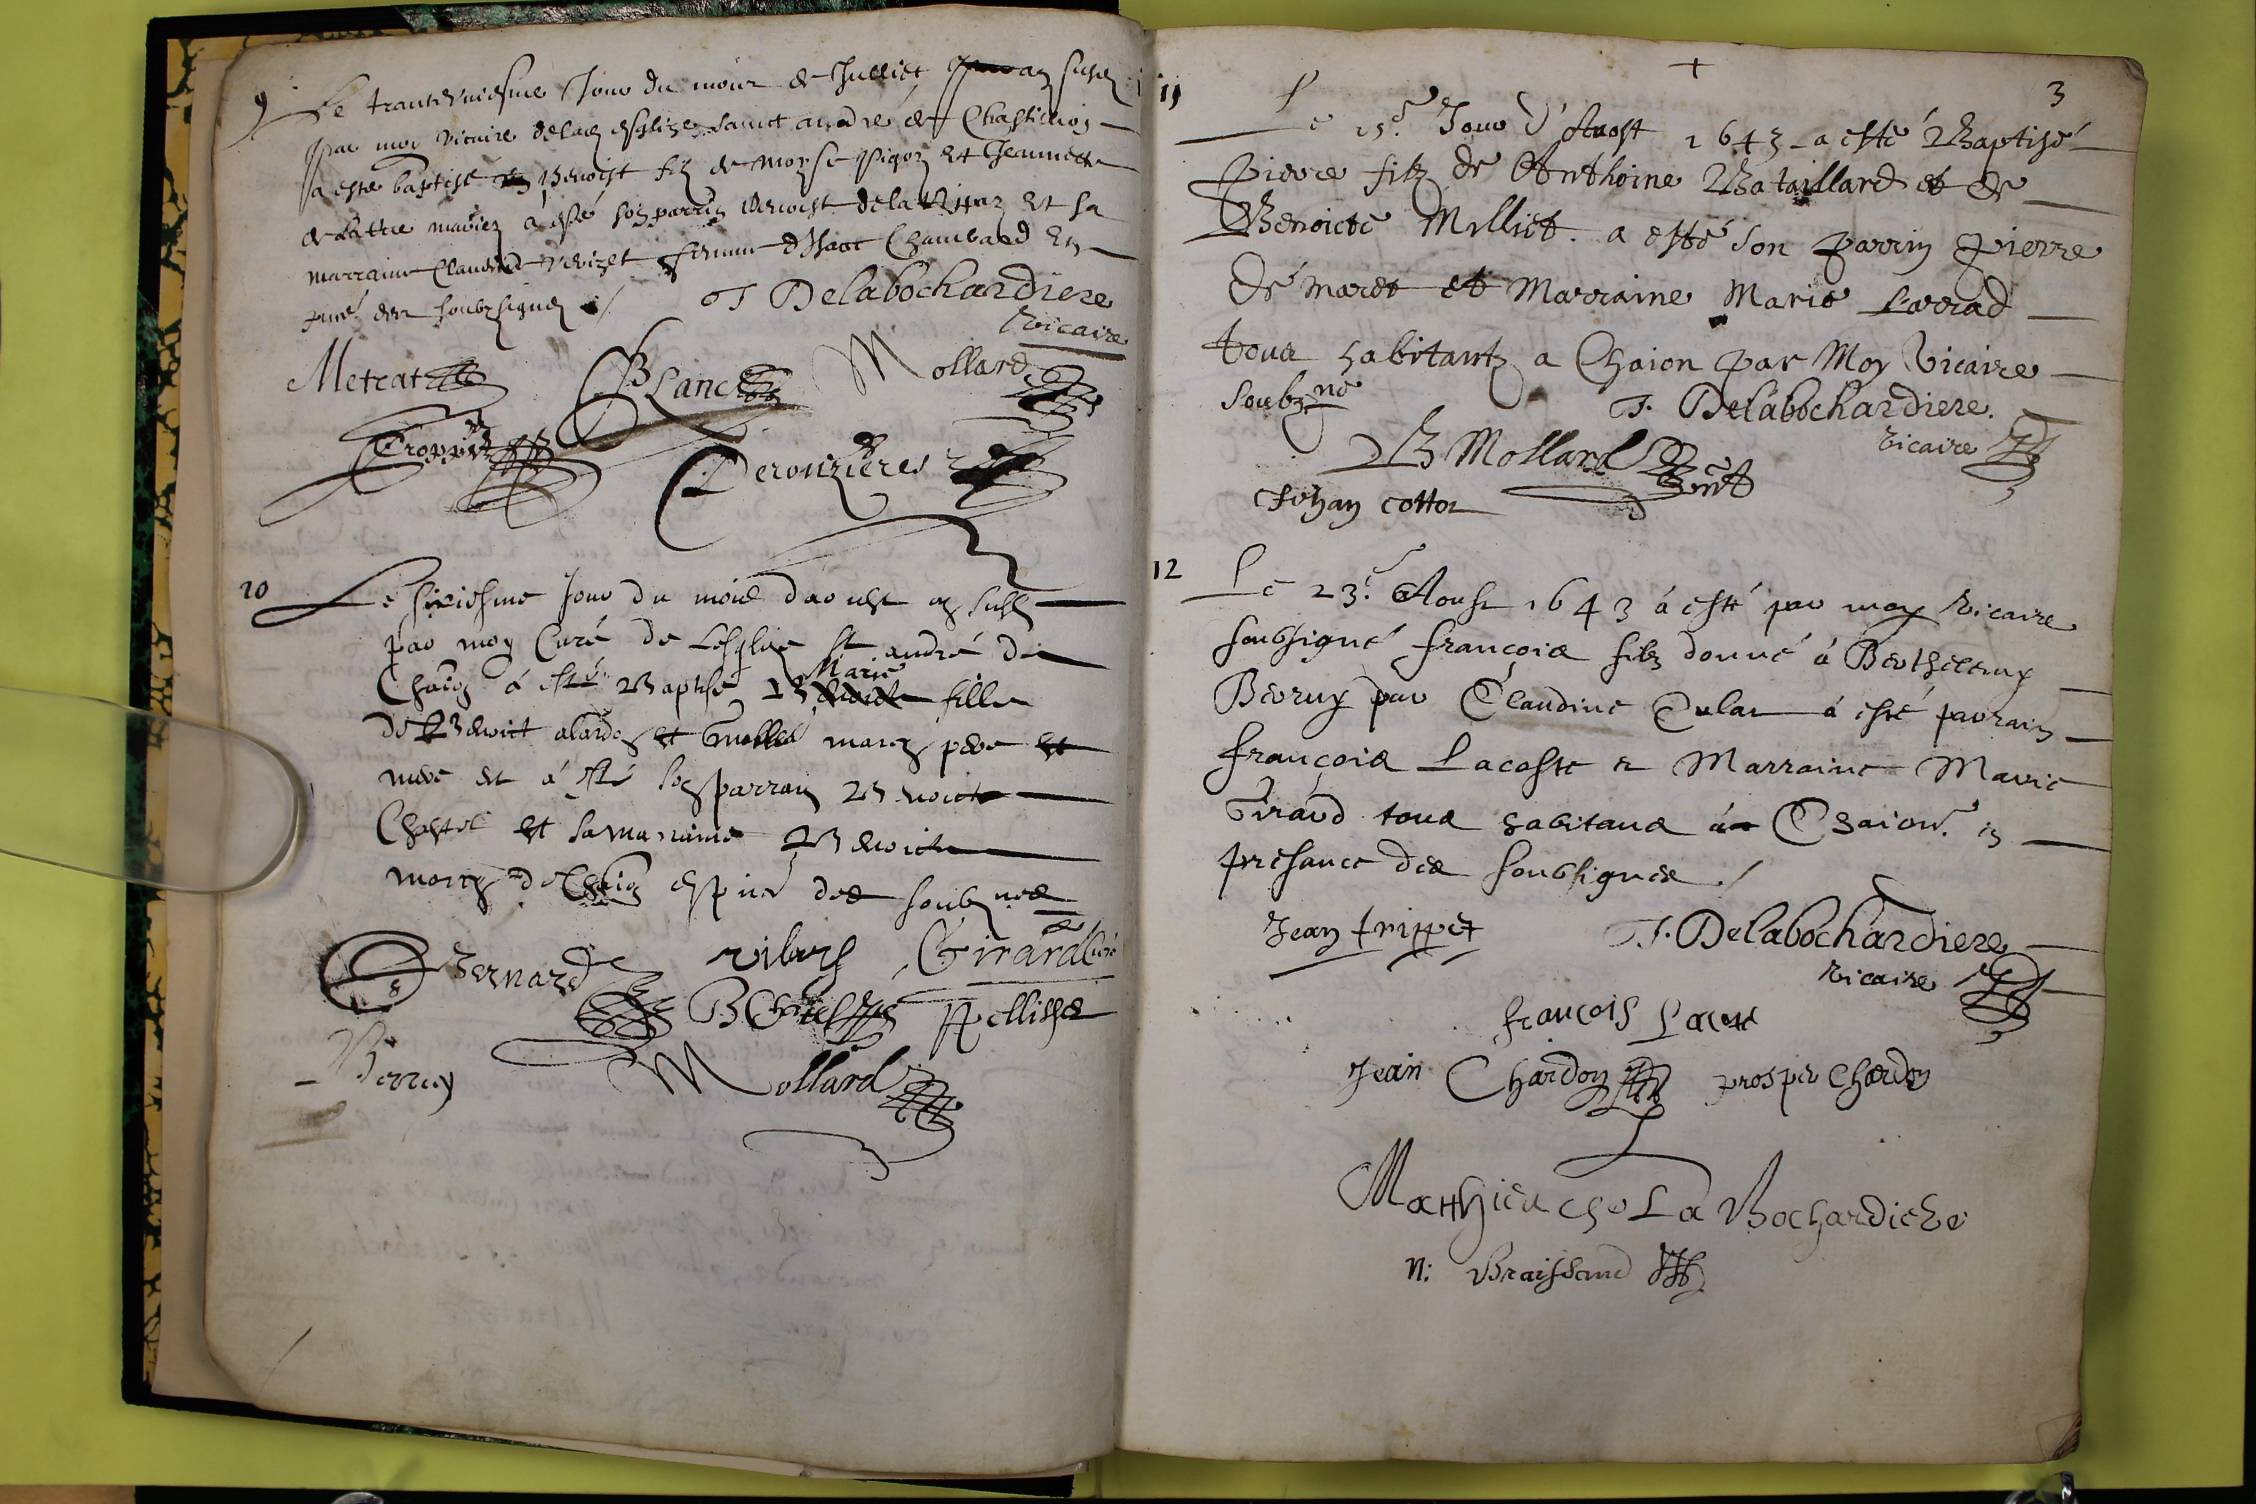 9
Le trantevniesme Jour du moiis de Juilliet an susd
par moy vicaire de la esglize sainct andré de Chastillion
a esté baptisé Benoist filz de Moyse pigon et Jeannette
a esté son parrin Benoist et sa
marraine Claudine femme d'Isaac Chambard En
pnce des soubsignes
T Delabochardiere
vicaire
Metrat
Blanc
Mollard
Troppet
Derouzieres
10
Le sixiesme Jour du mois daoust an susd
par moy Curé de Lesglise St andré de
Chaōn á esté Baptisé Marie fille
de Benoict et pere et
mere et á esté son parrain Benoict
Chastel et sa marraine Benoicte
de Chaōn en pnce des soubznes
Bernard
vilars
Girard curé
B Chatel
Pellisse
Berruy
Mollard
3
11
Le 15e. Jour d'Aoust 1643 a esté Baptisé
Pierre filz de Anthoine Bataillard et de
Benoicte Milliet. a esté son parrin Pierre
Dé maret et Marraine Marie Larrad
tous habitantz a Chaion par Moy Vicaire
Soubzné
T. Delabochardiere.
vicaire
B Mollard
Jehan cotton
12
Le 23e. Aoust 1643 á esté par moy vicaire
soubsigné françois filz donné á Berthelemy
Berruy par Claudine Cular á esté parrain
françois Lacoste & Marraine Marie
Giraud tous habitans á Chaion. en
presance des soubsignes
Jean trippet
T. Delabochardiere
vicaire
françois Lacote
Jean Chardon
prosper Chardon
Matthieu de La Bochardiere
N: Braissand